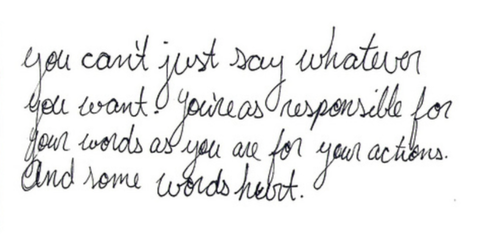 you can't just say whatever
you want. You're as responsible for
your words as you are for your actions.
And some words hurt.